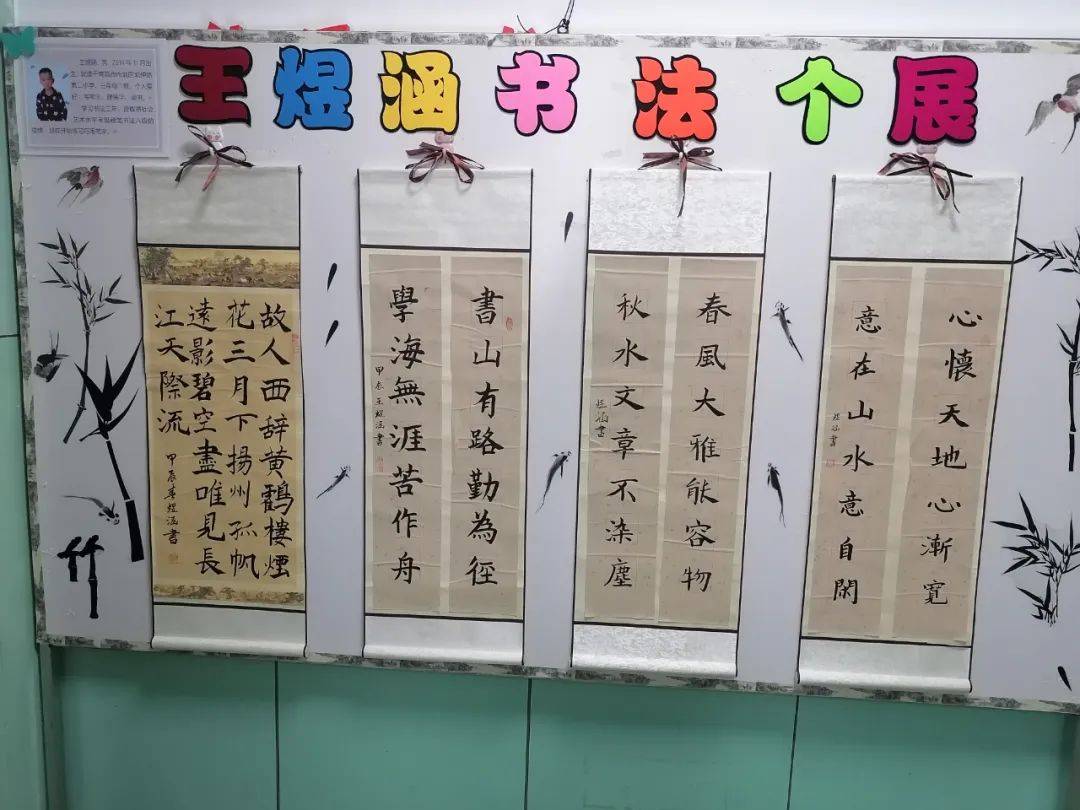 王煜涵书法个展
故人西辞黄鶴樓煙
花三月下揚州孤帆
遠影碧空盡唯見長
江天際流
甲辰春煜涵書
書山有路勤為徑
學海無涯苦作舟
甲辰王煜涵書
春風大雅能容物
秋水文章不染塵
煜涵書
心懷天地心漸寬
意在山水意自閑
煜涵書